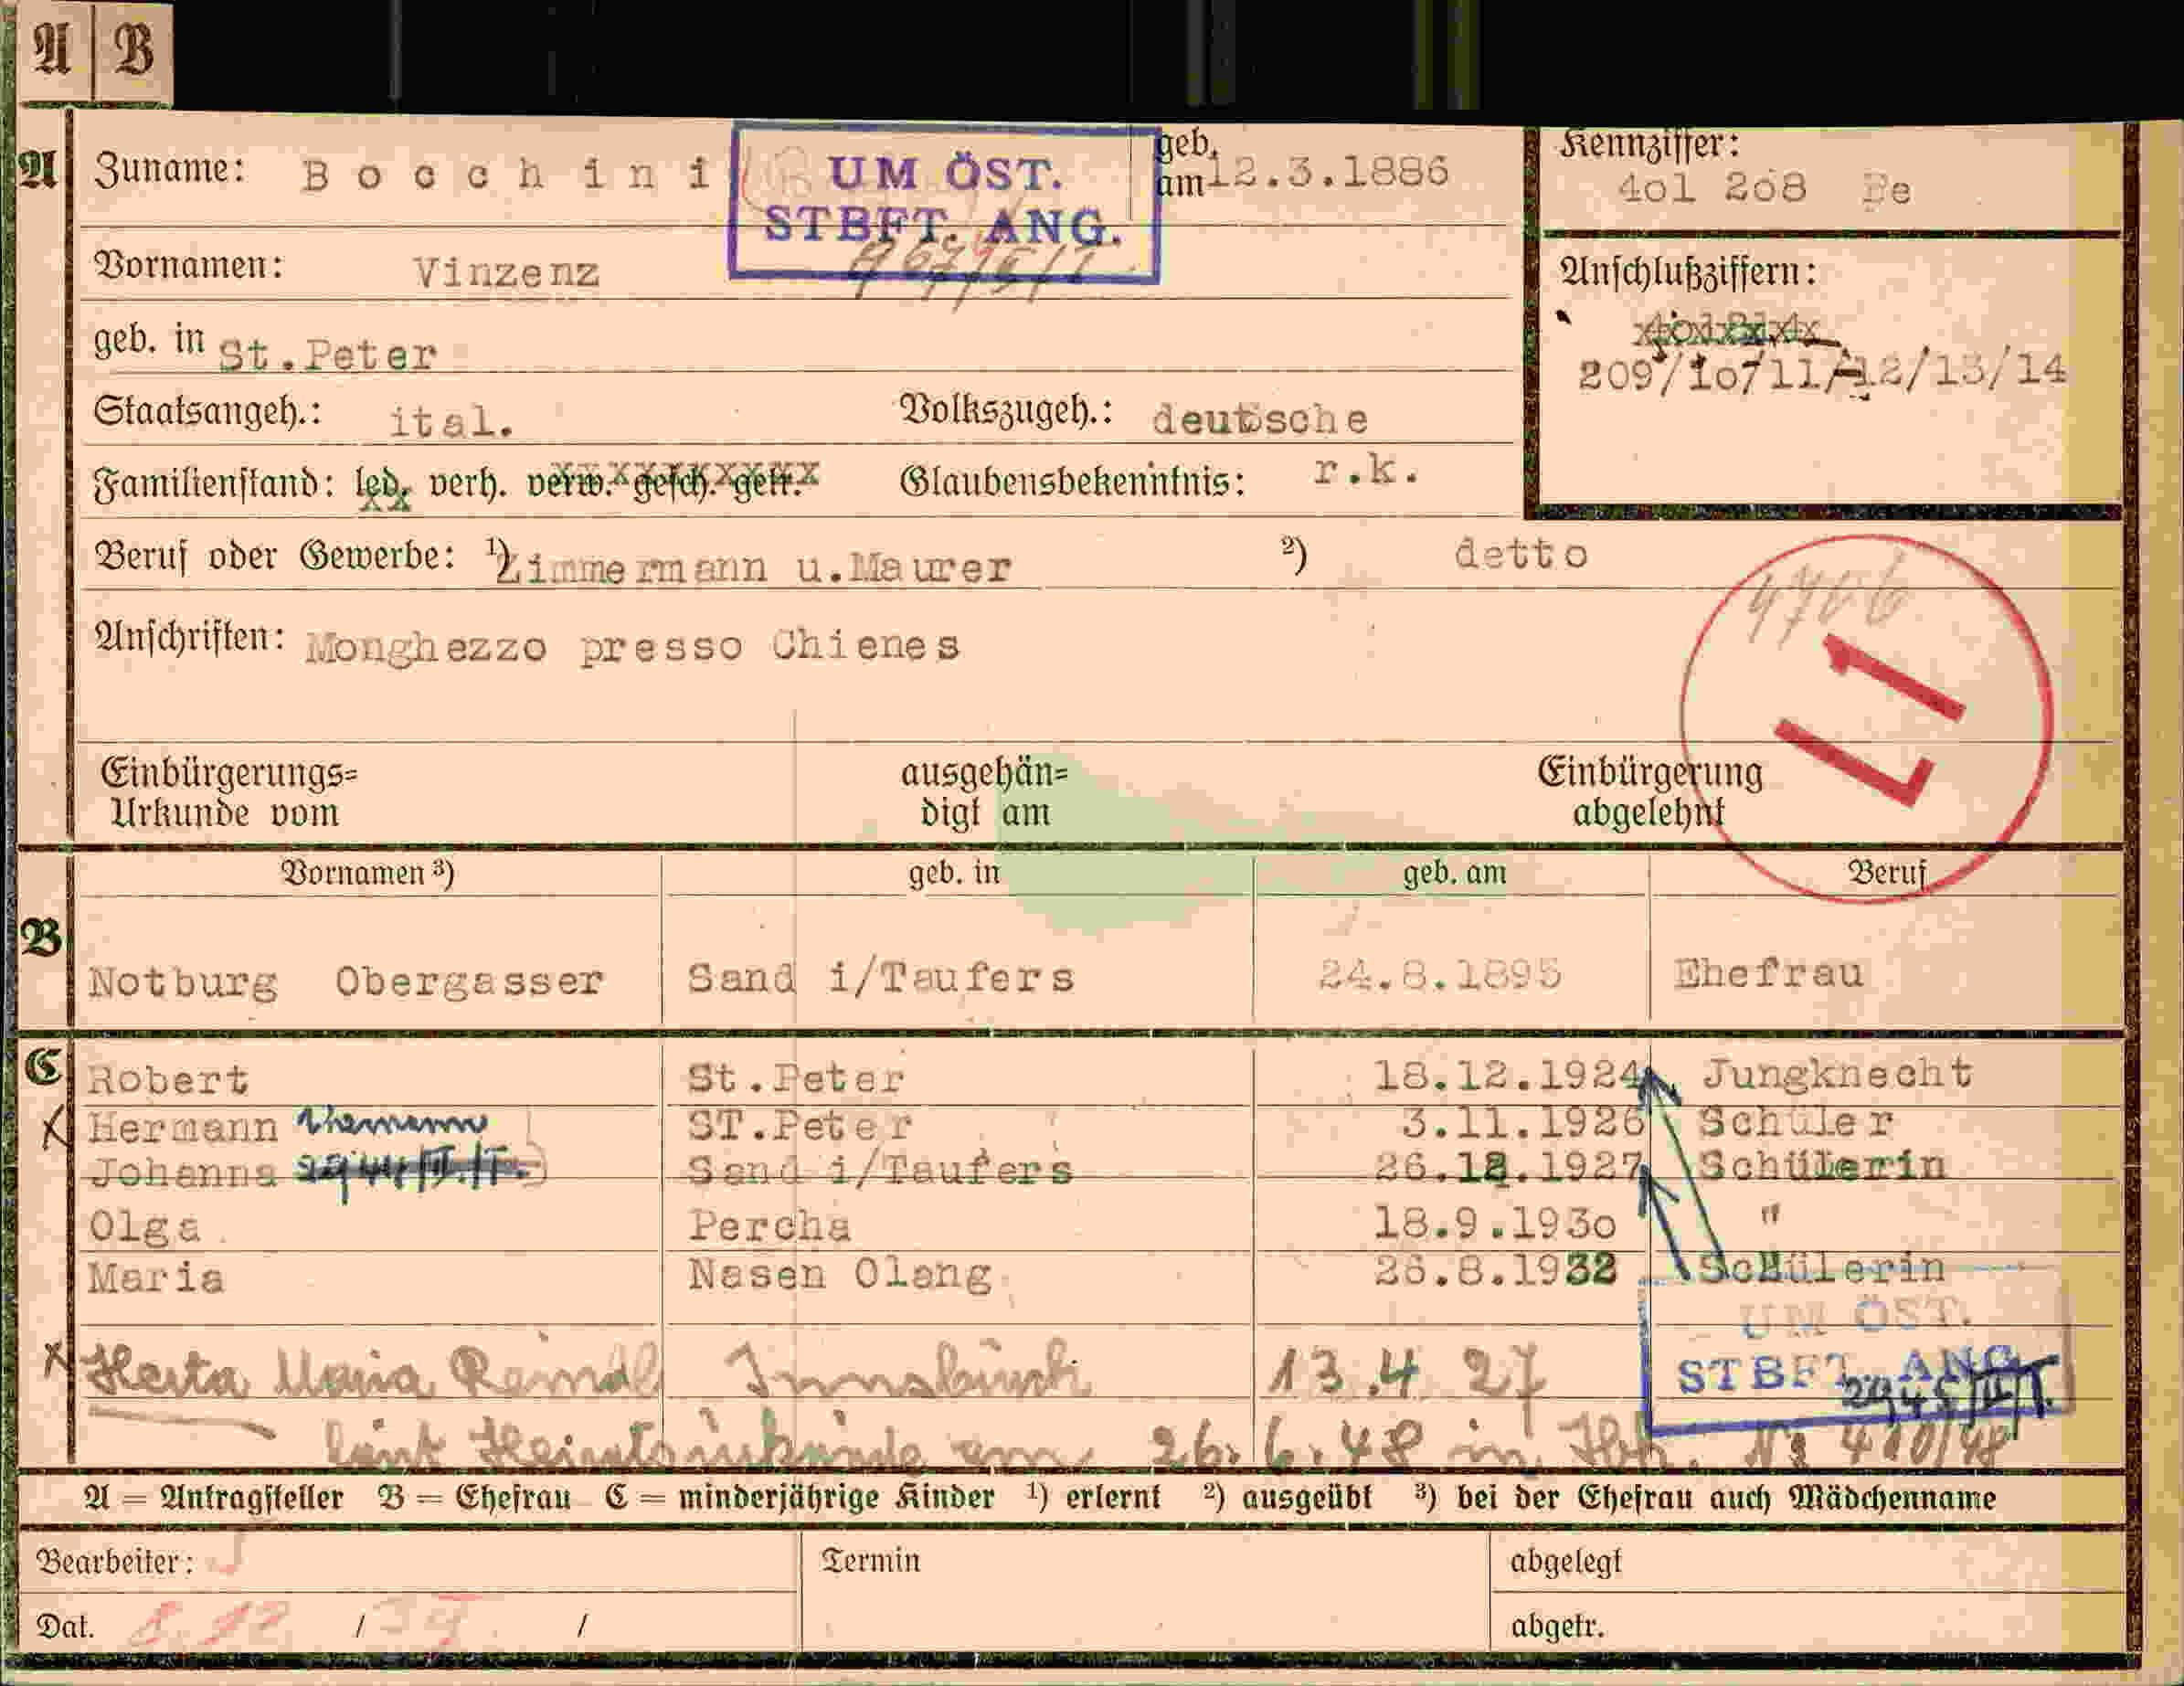 A B
A Zuname: Bocchini geb. am 12.3.1886 Kennziffer:
UM ÖST. STBFT. ANG.
401 208 Pe
Vornamen: Vinzenz
Anschlußziffern:
geb. in St.Peter
209/10/11/12/13/14
Staatsangeh.: ital. Volkszugeh.: deutsche
Familienstand: led. verh. verw. gesch. getr. Glaubensbekenntnis: r.k.
Beruf oder Gewerbe: ¹) Zimmermann u.Maurer ²) detto
4706
Anschriften: Monghezzo presso Chienes
L 1
Einbürgerungs= ausgehän= Einbürgerung
Urkunde vom digt am abgelehnt
Vornamen ³) geb. in geb. am Beruf
B
Notburg Obergasser Sand i/Taufers 24.8.1895 Ehefrau
C Robert St.Peter 18.12.1924 Jungknecht
x Hermann ST.Peter 3.11.1926 Schüler
Johanna Sand i/Taufers 26.12.1927 Schülerin
Olga Percha 18.9.1930 "
Maria Nasen Olang 26.8.1932 Schülerin
UM ÖST.
STBFT. ANG.
x Herta Maria Innsbruck 13.4 27
laut Heiratsurkunde am 26.6.48 in 410/48
A = Antragsteller B = Ehefrau C = minderjährige Kinder ¹) erlernt ²) ausgeübt ³) bei der Ehefrau auch Mädchenname
Bearbeiter: Termin abgelegt
Dat. / / abgetr.